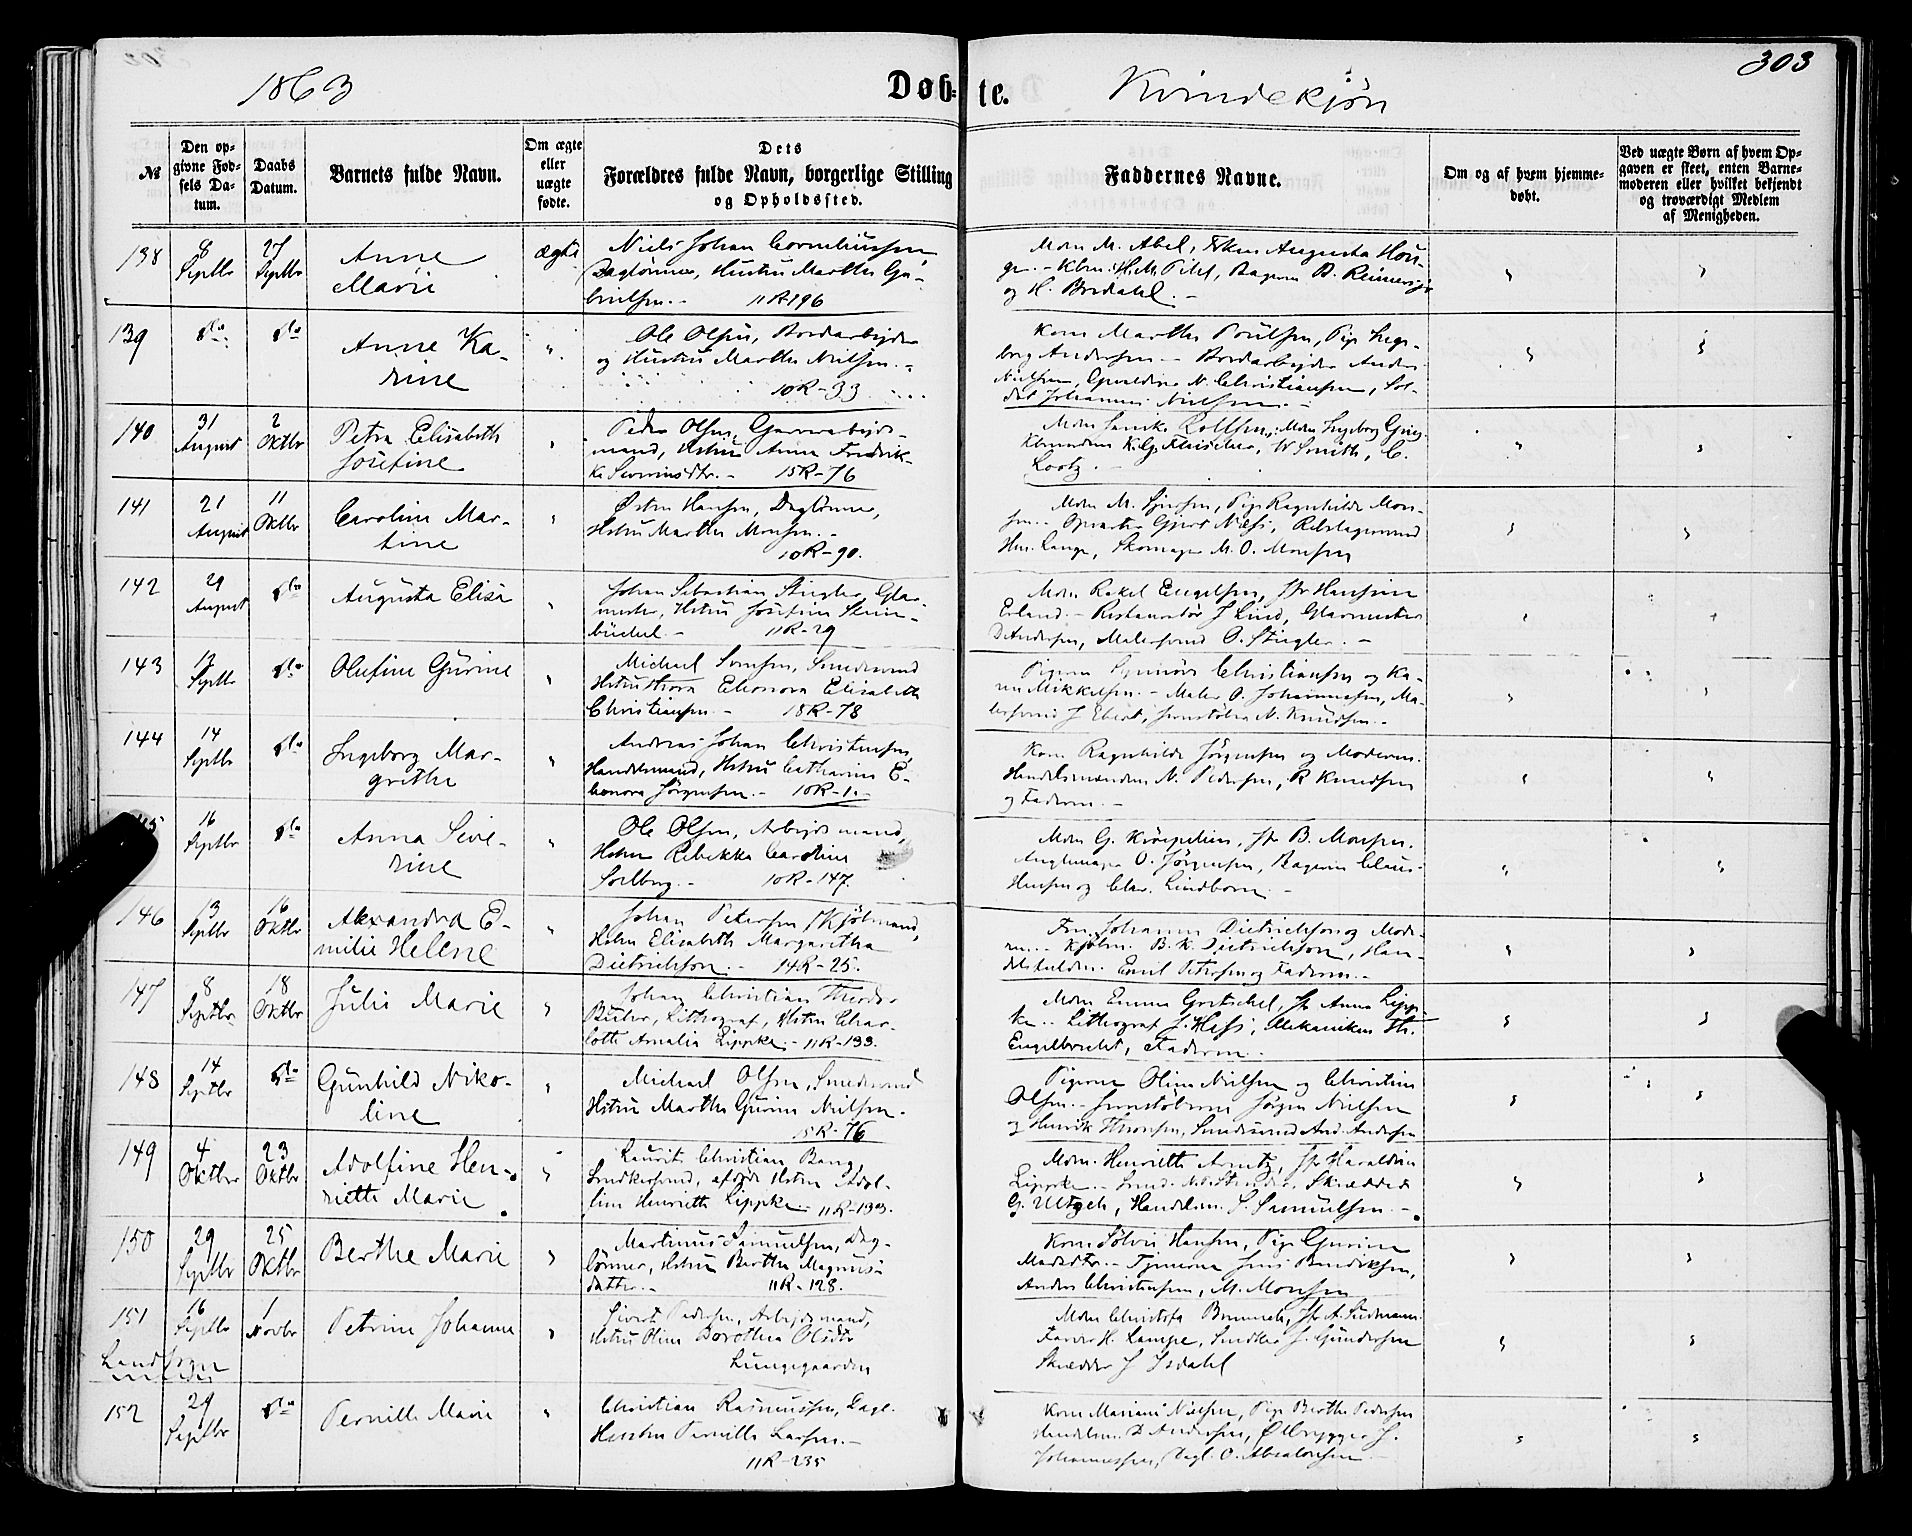 303
1863 Døb- te. Kvindekjøn
№
Den op-
givne Fød-
sels Da-
tum.
Daabs
Datum.
Barnets fulde Navn.
Om ægte
eller
uægte
fødte.
Dets
Forældres fulde Navn, borgerlige Stilling
og Opholdssted.
Faddernes Navne.
Om og af hvem hjemme-
døbt.
Ved uægte Børn af hvem Op-
gaven er skeet, enten Barne-
moderen eller hvilket bekjendt
og troværdigt Medlem
af Menigheden.
138
8
Septbr
27
Septbr
Anne
Marie
ægte
Niels Johan Corneliussen
Daglønner, Hustru Marthe Ga-
brielsen.- 11R-196
Mdm M. Abel, Augusta
og H. Bredahl.-
139
do
do
Anne Ka-
rine
"
Ole Olsen, Bordarbejder
og Hustru Marthe Nielsen.-
10R-33
Kone Marthe Poulsen, Pige Inge-
borg Andersen.- Bordarbejder Anders
Nielsen, N. Christiansen, Sol-
dat Johannes Nielsen.-
140
31
August
2
Oktbr
Petra Elisabeth
Josefine
"
Peder Olsen, Garverarbejds-
mand, Hstru Anna Fredrik-
ke Severinsdtr.- 15R-76
Mdm Rolfsen, Mdm Ingeborg Grieg
Fleischer, W Smith, C.
Lootz.-
141
21
August
11
Oktbr
Caroline Mar-
tine
"
Østen Hansen, Dagtønner,
Hstru Marthe Monsen.-
10R-90.
Mdm M. Pige Ragnhilde Mon-
sen.- Gjert
Lange, Skomager M. O. Monsen
142
29
August
do
Augusta Elise
"
Johan Sebastian Stiegler, Glar-
mester, Hstru Josefine Stein-
büchel.- 11R-29
Mdm Rakel Engelsen, Jfr Hansine
Erland.- Restauratør J Lind, Glarmester
D Andersen, Malersvend O. Stiegler.-
143
13
Septbr
do
Olufine Gurine
"
Michael Smedsvend
Hstru Thora Elenora Elisabeth
Christiansen.- 18R-78
Pigerne Christiansen og Ka-
ren Mikkelsen.- Maler O. Johannesen, Ma-
lersvend J Ebert, Jernstøber N. Knudsen.-
144
14
Septbr
do
Ingeborg Mar-
grethe
"
Andreas Johan Christensen,
Handelsmand, Hstru Catharine E-
leonora Jørgensen.- 10R-1.-
Kone Ragnhilde Jørgensen og Moderen.
Handelsmændene N. Pedersen, R Knudsen
og Faderen.-
16
Septbr
do
Anna Seve-
rine
"
Ole Olsen, Arbejdsmand,
Hstru Rebekka Caroline
Solberg.- 10R-147.
Mdm G. Krøepelien, Jfr B. Monsen.
O. Jørgensen, Bagerne Claus
Hensen og Chr. Lindborn.-
146
13
Septbr
16
Oktbr
Alexandra E-
milie Helene
"
Johan Petersen, Kjøbmand,
Hstru Elisabeth Margaretha
Dietrichson.- 14R-25.
Fru Johanne Dietrichson og Mode-
ren.- Kjøbm. B. K. Dietrichson, Han-
Emil Petersen og Faderen.-
147
8
Septbr
18
Oktbr
Julie Marie
"
Johan Christian Theodor
Lithograf, Hstru Char-
lotte Amalia Lippke.- 11R-133.
Mdm Emma Gretschel, Jfr Anna Lipp-
ke.- Lithograf J. Mekanikus Th.
Engelbrecht, Faderen.-
148
14
Septbr
do
Gunhild Niko-
line
"
Michael Olsen, Smedsvend
Hstru Marthe Gurine Nielsen.
15R-76
Pigerne Oline Nielsen og Christine
Olsen.- Jernstøberne Jørgen Nielsen
og Henrik Thomsen, Smedsvend And. Andersen
149
4
Oktbr
23
Oktbr
Adolfine Hen-
riette Marie
"
Laurits Christian Bang,
Snedkersvend, Hstru Adol-
fine Henriette Lippke 11R-133.
Mdm. Henriette Arntz, Jfr Haraldine
Lippke.- Skrædder
G. Handelsm. S. Samuelsen.-
150
29
Septbr
25
Oktbr
Berthe Marie
"
Martinus Samuelsen, Dag-
lønner, Hstru Berthe Magnus-
datter.- 11R-128.
Kone Sølvie Hansen, Pige Gurine
Madsdtr.- Tjenerne Jens Bendiksen,
Anders Christensen, M. Monsen
151
Landsogn
16
Septbr
1
Novbr
Petrine Johanne
"
Sivert Pedersen, Arbejdsmand,
Hstru Oline Dorothea Olsdtr
Lungegaarden
Mdm Christofa Jfr A. Sudmann
Farver H. Lampe, Snedker J. Gundersen
Skrædder J Isdahl
152
29
Septbr
do
Pernille Marie
"
Christian Rasmussen, Dagl.
Hustru Pernille Larsen.-
11R-235
Kone Mariane Nielsen, Pige Berthe Pedersen
Handelsm. D Andersen, Ølbrygger J.
Johannessen, Dagl. O. Absalonsen